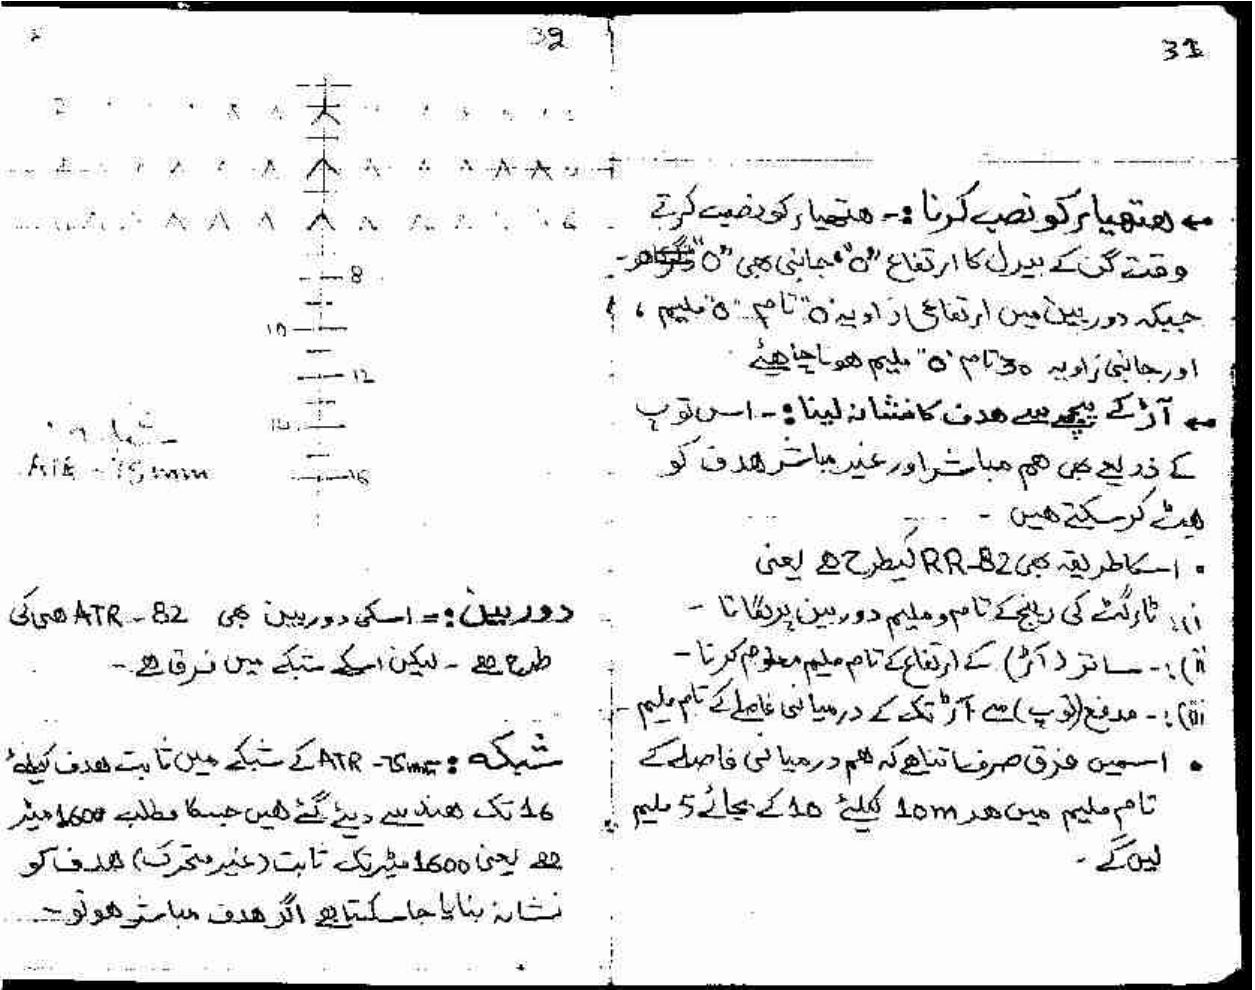 31
← ھتھیار کو نصب کرنا :- ھتھیار کو نصب کرتے
وقت گن کے بیرل کا ارتفاع "0" جانبی بھی "0" ھو -
جبکہ دوربین میں ارتفاعی زاویہ "0" تام "0" ملیم ،
اور جانبی زاویہ 30 تام "0" ملیم ھونا چاھئے
← آڑ کے پیچھے سے ھدف کا نشانہ لینا :- اس توپ
کے ذریعے بھی ھم مباشر اور غیر مباشر ھدف کو
ھٹ کرسکتے ھیں -
• اسکا طریقہ بھی RR-82 کیطرح ھے یعنی
i): ٹارگٹ کی رینج کے تام و ملیم دوربین پر لگانا -
ii):- ساتر (آڑ) کے ارتفاع کے تام ملیم معلوم کرنا -
iii):- مدفع (توپ) سے آڑ تک کے درمیانی فاصلے کے تام ملیم -
• اسمیں فرق صرف اتنا ھے کہ ھم درمیانی فاصلے کے
تام ملیم میں ھر 10m کیلئے 10 کے بجائے 5 ملیم
لیں گے -
32
2
4
6
8
10
12
14
16
ATR - 75mm
دوربین :- اسکی دوربین بھی ATR - 82 ھی کی
طرح ھے - لیکن اسکے شبکے میں فرق ھے -
شبکہ : ATR - 75mm کے شبکے میں ثابت ھدف کیلئے
16 تک ھندسے دیئے گئے ھیں جسکا مطلب 1600 میٹر
ھے یعنی 1600 میٹر تک ثابت (غیر متحرک) ھدف کو
نشانہ بنایا جاسکتا ھے اگر ھدف مباشر ھو تو -